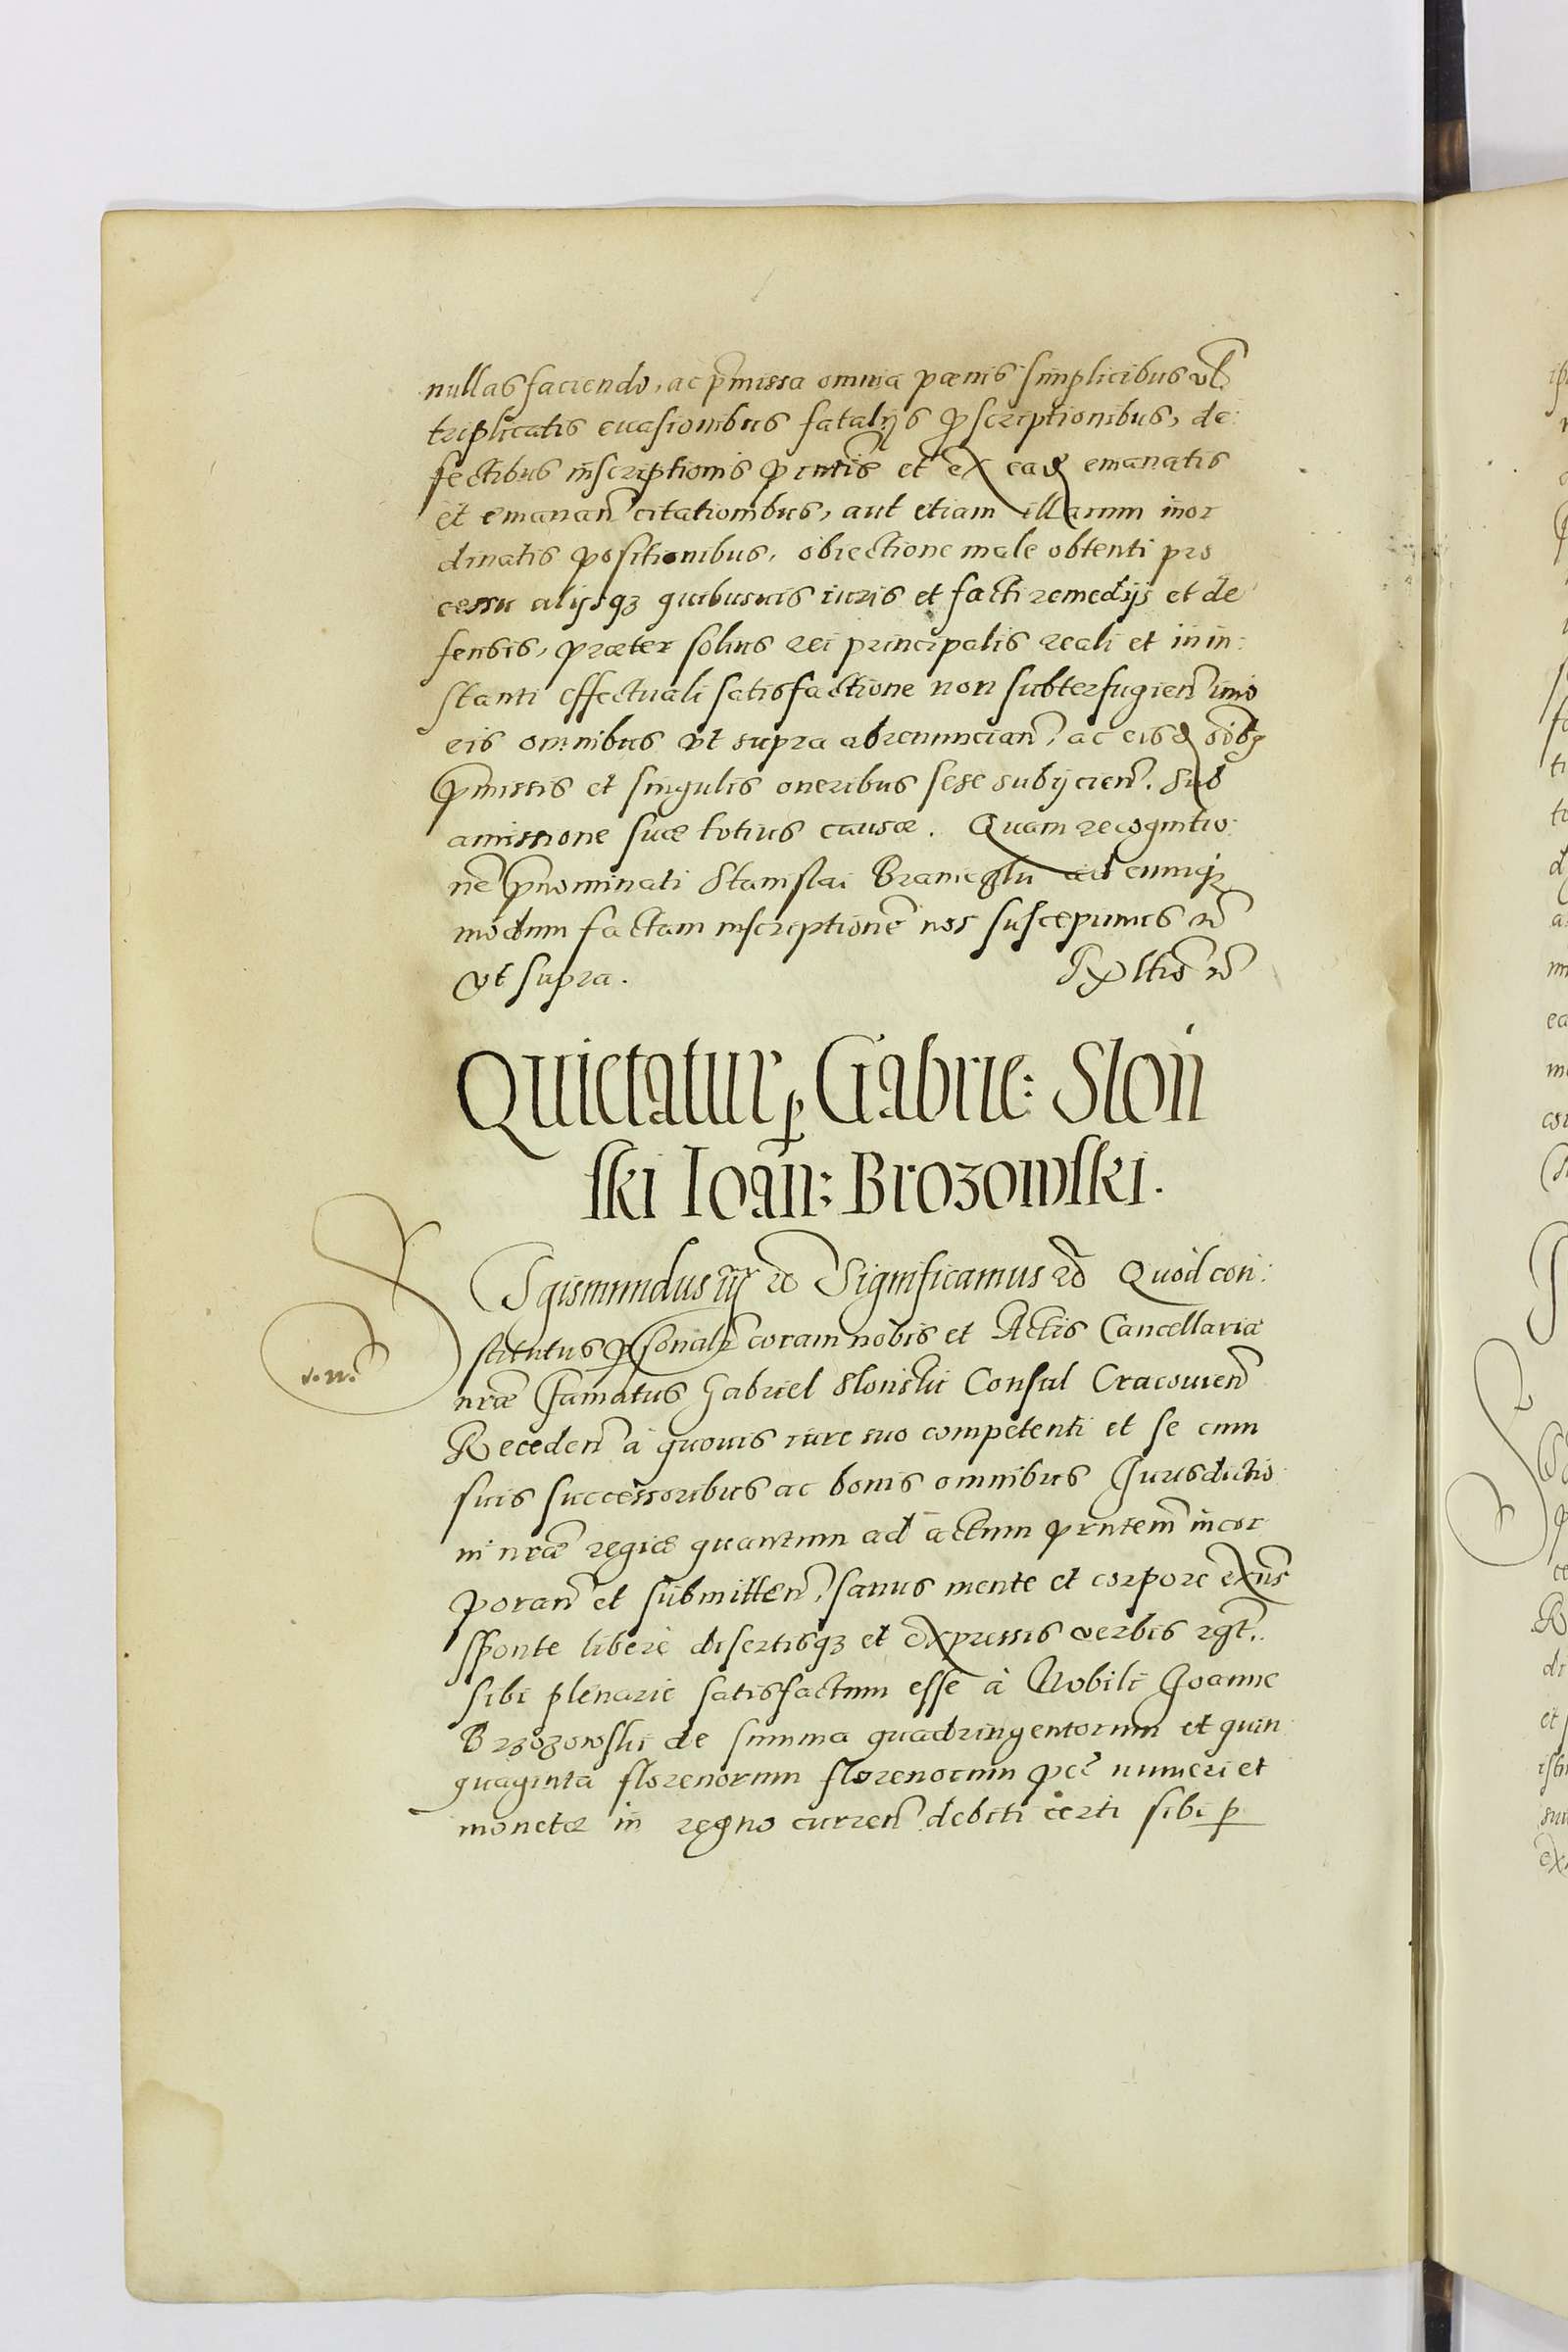 nullas faciendo, ac p̄missa omnia pœnis simplicibus vl
triplicatis euasionibus fatalijs p̱scriptionibus, de:
fectibus inscriptionis p̄ntis et ex ead emanatis
et emanan̄ citationibus, aut etiam illarum inor
dinatis positionibus, obiectione male obtenti pro
cessu alijsqȝ quibusuis iuris et facti remedijs et de
fensis, præter solius rei principalis reali et in in:
stanti effectuali satisfactione non subterfugien̄ imo
eis omnibus vt supra abrenuncian̄, ac eisd oībꝫ
p̄missis et singulis oneribus sese subijcien̄. Sub
amissione suæ totius causæ. Quam recognitio:
nē p̄nominati Stanislai ad eumqȝ
modum factam inscriptionē nos suscepimus ꝛc
vt supra.
Quietatur ꝑ Gabrie: Slon
ski Ioan̄: Brozowski.
Sigismundus iij ꝛc Significamus ꝛc Quod con:
stitutus ꝑsonalr coram nobis et Actis Cancellariæ
nræ Famatus Gabriel Slonski Consul Cracouien̄
Receden̄ à quouis iure suo competenti et se cum
suis successoribus ac bonis omnibus Jurisdictio
ni nræ regiæ quantum ad actum p̄ntem incor
poran̄ et submitten̄, sanus mente et corpore ex̄ns
sponte liberè disertisqȝ et expressis verbis rgt.
sibi plenarie satisfactum esse à Nobili Joanne
Brzozowski de summa quadringentorum et quin
quaginta florenorum florenorum pec̄ numeri et
monetæ in regno curren̄ debiti certi sibi ꝑ